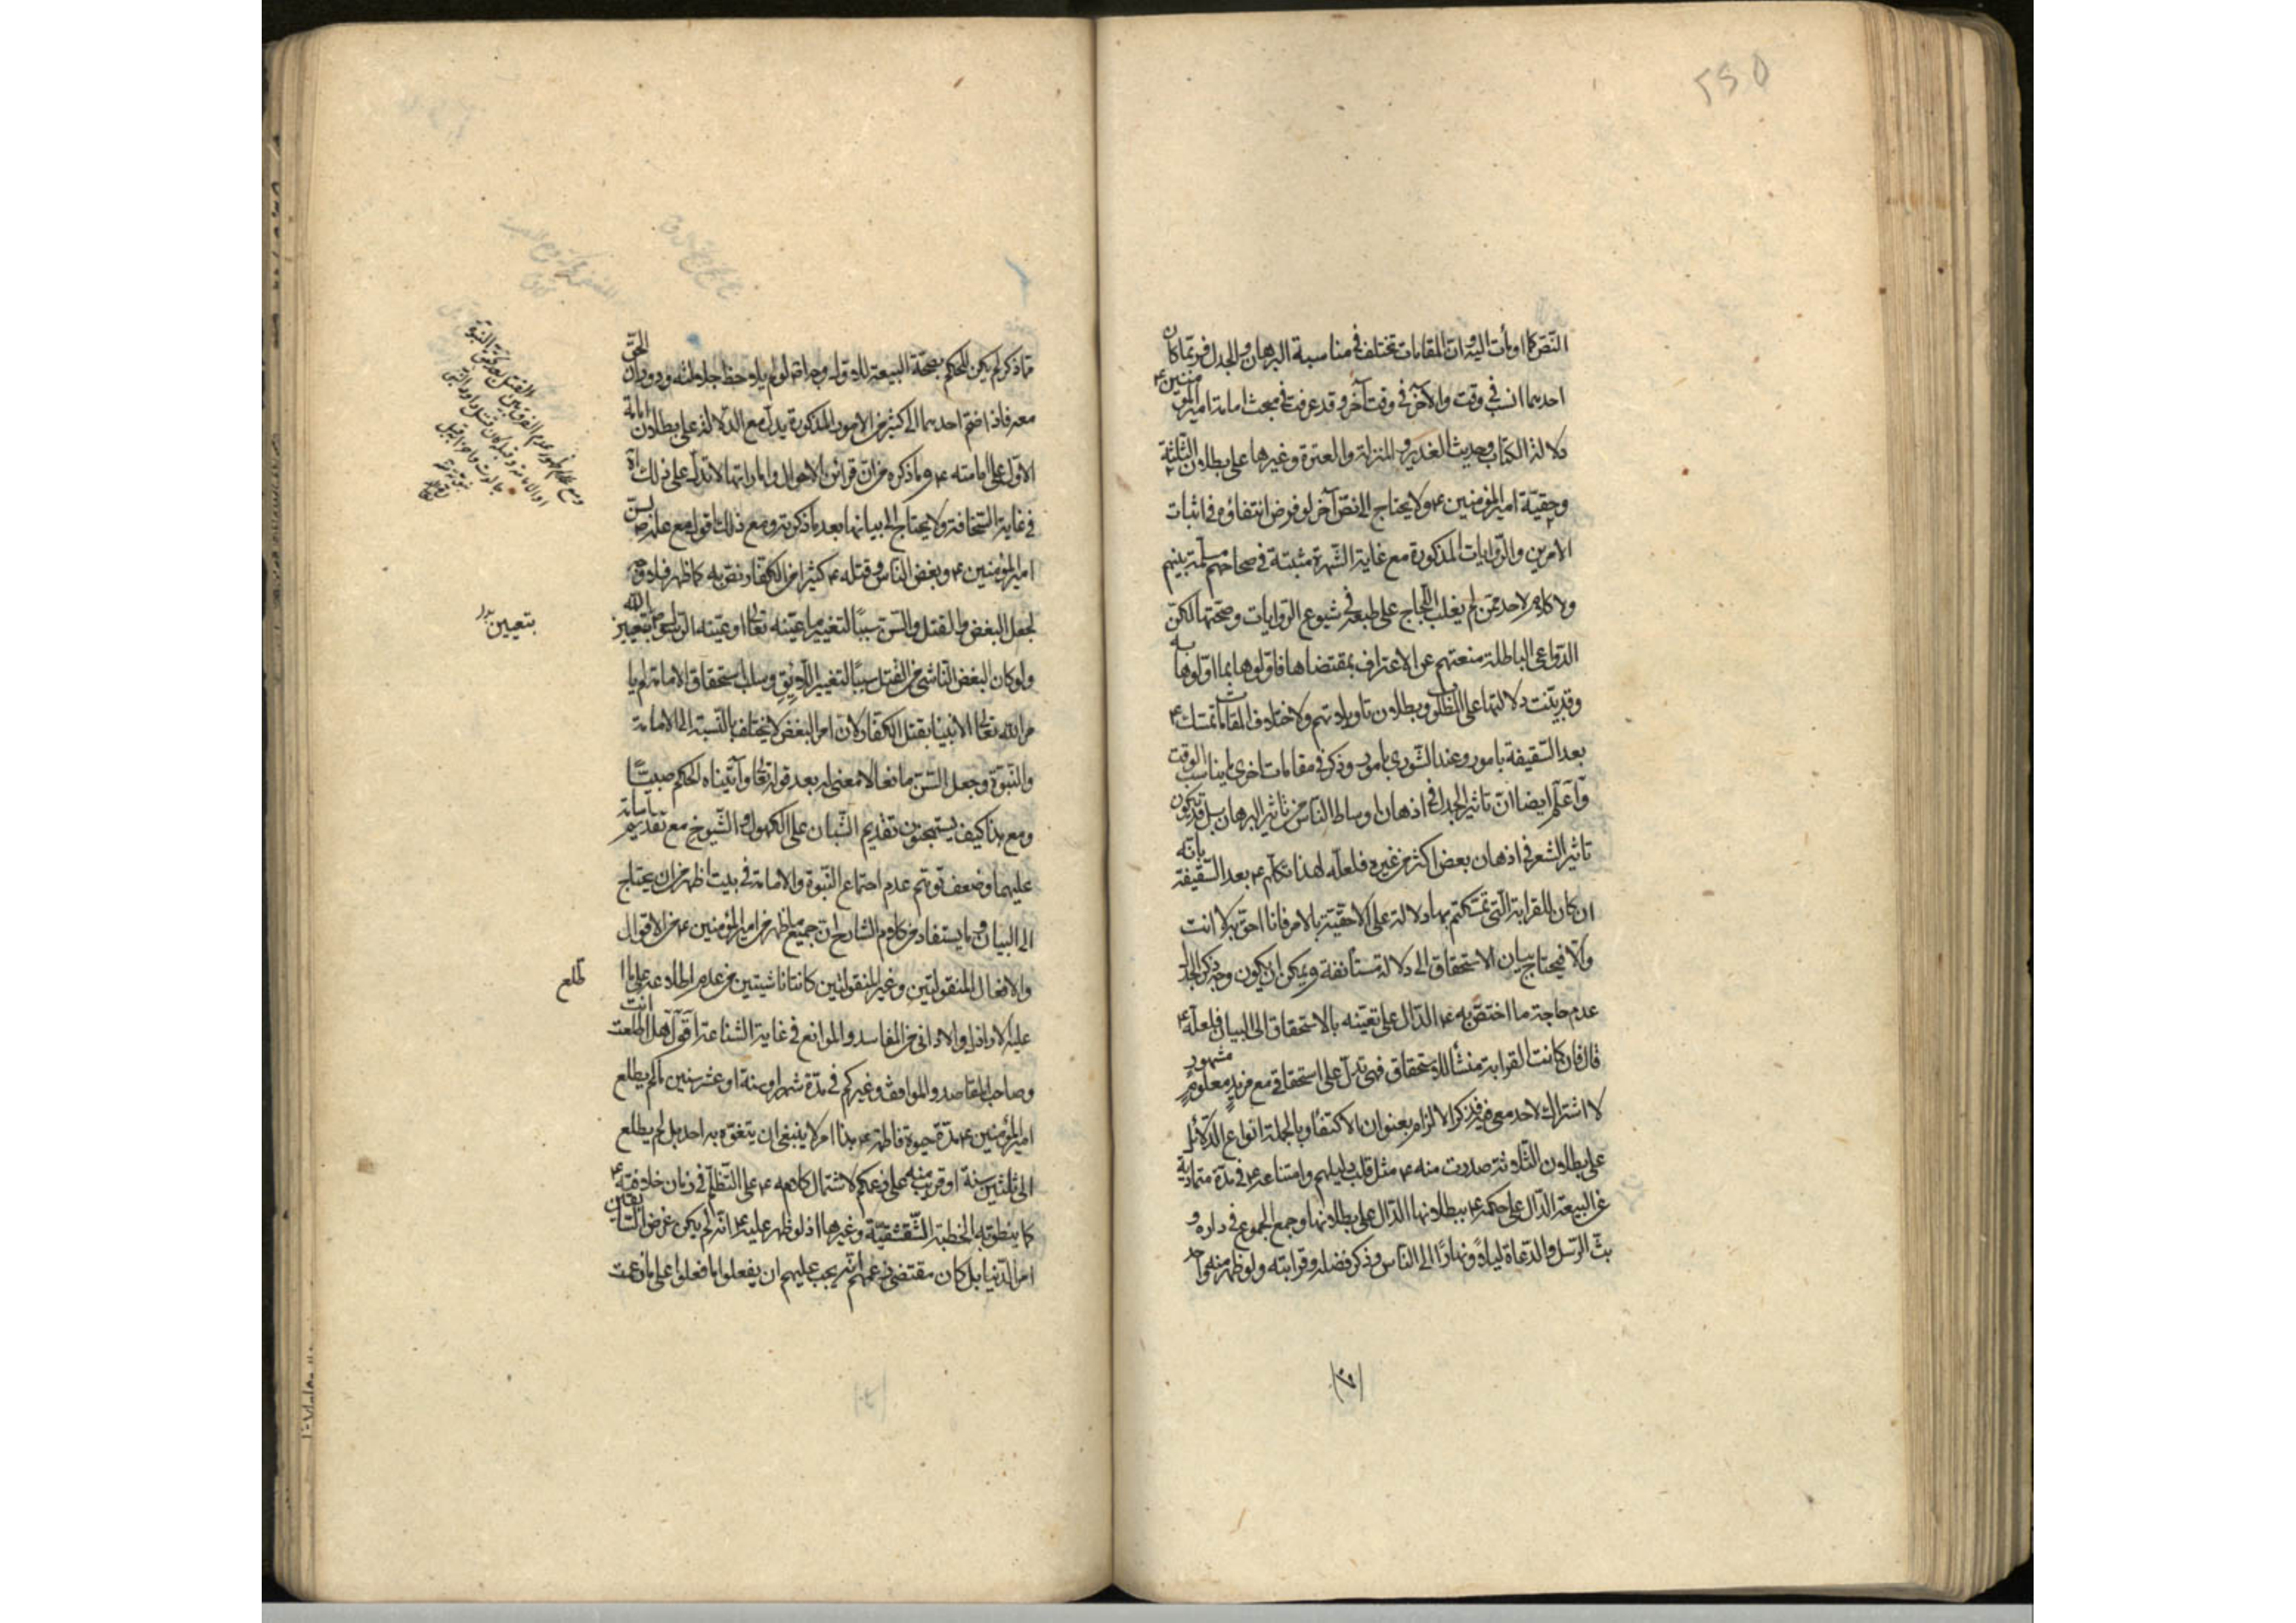 ۲۶۵
النّص كما اومأت اليه وان المقامات تختلف في مناسبة البرهان والجدل فربّما كان
احدهما انسب في وقت والآخر في وقت آخر وقد عرفت في مبحث امامة امير المؤمنين ع
دلالة الكتاب وحديث الغدير والمنزلة والعترة وغيرها على بطلان الثلثة
وحقيّة امير المؤمنين ع ولا يحتاج الى نصّ آخر لو فرض انتفاؤه في اثبات
الامرين والرّوايات المذكورة مع غاية الشّهرة مثبتة في صحاحهم مسلّمة بينهم
ولا كلام لاحد ممّن لم يغلب اللّجاج على طبعه في شيوع الرّوايات وصحّتها لكن
الدّواعي الباطلة منعتهم عن الاعتراف بمقتضاها فاوّلوها بما اوّلوها به
وقد بيّنت دلالتها على المطلوب وبطلان تاويلاتهم ولاختلاف المقامات تمسّك ع
بعد السّقيفة بامور وعند الشّورى بامور وذكر في مقامات اخرى ما يناسب الوقت
واعلم ايضا انّ تاثير الجدل في اذهان اوساط النّاس من تاثير البرهان بل قد يكون
تاثير الشعر في اذهان بعض اكثر من غيره فلعلّه لهذا تكلّم ع بعد السّقيفة بانّه
ان كان للقرابة الّتي تمسّكتم بها دلالة على الاحقيّة بالامر فانا احقّ به لا انت
والّا فيحتاج بيان الاستحقاق الى دلالة مستأنفة ويمكن ان يكون وجه ذكر الجدل
عدم حاجة ما اختصّ به ع الدّال على تعيّنه بالاستحقاق الى البيان فلعلّه ع
قال فان كانت القرابة منشأ للاستحقاق فهي تدلّ على استحقاقي مع مزيد معلوم مشهور
لا اشتراك لاحد معي فيه فذكر الالزام بعنوان الاكتفاء وبالجملة انواع الدّلائل
على بطلان الثّلاثة صدرت منه ع مثل قلب دليلهم وامتناعه ع في مدّة متمادية
عن البيعة الدّال على حكمه ع ببطلانها الدّال على بطلانها وجمع الجموع في داره و
بثّ الرّسل والدّعاة ليلاً ونهارًا الى النّاس وذكر فضله وقرابته ولو ظهر منه واحد
ممّا ذكر لم يكن للحكم بصحّة البيعة للاوّل وجه اصلا لو لم يلاحظ جلالته ودوران الحقّ
معه فاذا ضمّ احدهما الى كثير من الامور المذكورة يدلّ مع الدّلالة على بطلان امامة
الاوّل على امامته ع وما ذكره من انّ قرائن الاحوال واماراتها لا تدلّ على ذلك
في غاية السّخافة ولا يحتاج الى بيانها بعد ما ذكرته ومع ذلك اقول مع
امير المؤمنين ع وبغض النّاس وقتله ع كثيرا من الكفّار ونصّ به كما ظهر
لجعل البغض والقتل والسّن سببًا لتغيير ما عيّنه الله تعالى او عيّنه الرّسول بتعيين
ولو كان البغض النّاشي من القتل سببًا لتغيير اللّائق وسلب استحقاق الامامة لم يا
مر الله تعالى الانبياء بقتل الكفّار لانّ امر البغض لا يختلف بالنّسبة الى الامامة
والنّبوّة وجعل السّن مانعا لا معنى له بعد قوله تعالى وآتيناه الحكم صبيًّا
ومع هذا كيف يستهجنون تقديم الشّبان على الكهول والشّيوخ مع تقديم اسامة
عليهما وضعف توهّم عدم اجتماع النّبوة والامامة في بيت اظهر من ان يحتاج
الى البيان وما يستفاد من كلام الشارح انّ جميع ما ظهر من امير المؤمنين ع من الاقوال
والافعال المنقولتين وغير المنقولتين كانتا ناشيتين من عدم اطلاعه على ما
عليه الاراذل والاداني من المفاسد والموانع في غاية الشناعة اقول هل اطّلعت انت
وصاحب المقاصد والمواقف وغيركم في مدّة شهر او سنة او عشر سنين ما لم يطلع
امير المؤمنين ع مدّة حيوة فاطمة ع هذا امر لا ينبغي ان يتفوّه به احد بل لم يطلع
الى ثلثين سنة او قريب منه على زعمكم لاشتمال كلامه ع على التّظلّم في زمان خلافته ع
كما ينطق به الخطبة الشّقشقيّة وغيرها اذ لو ظهر عليه ع انّه لم يكن غرض السّابقين
امر الدّنيا بل كان مقتضى زعمهم انّه يجب عليهم ان يفعلوا ما فعلوا على ما زعمت
بتعيين بدل